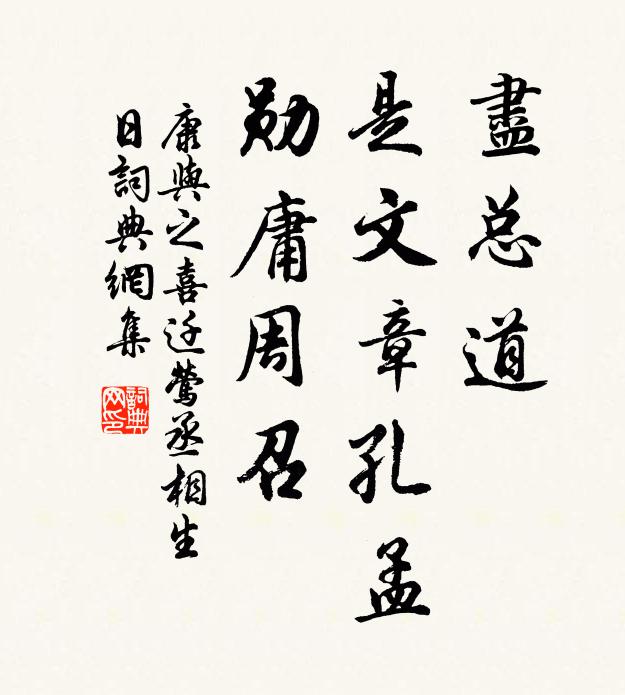 盡总道
是文章孔孟
勋庸周召
康與之喜迁鶯丞相生
日詞典網集
詞典网印